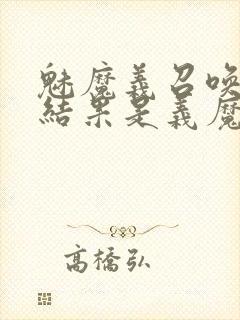 魅魔義召喚
結果是義魔
高橋弘